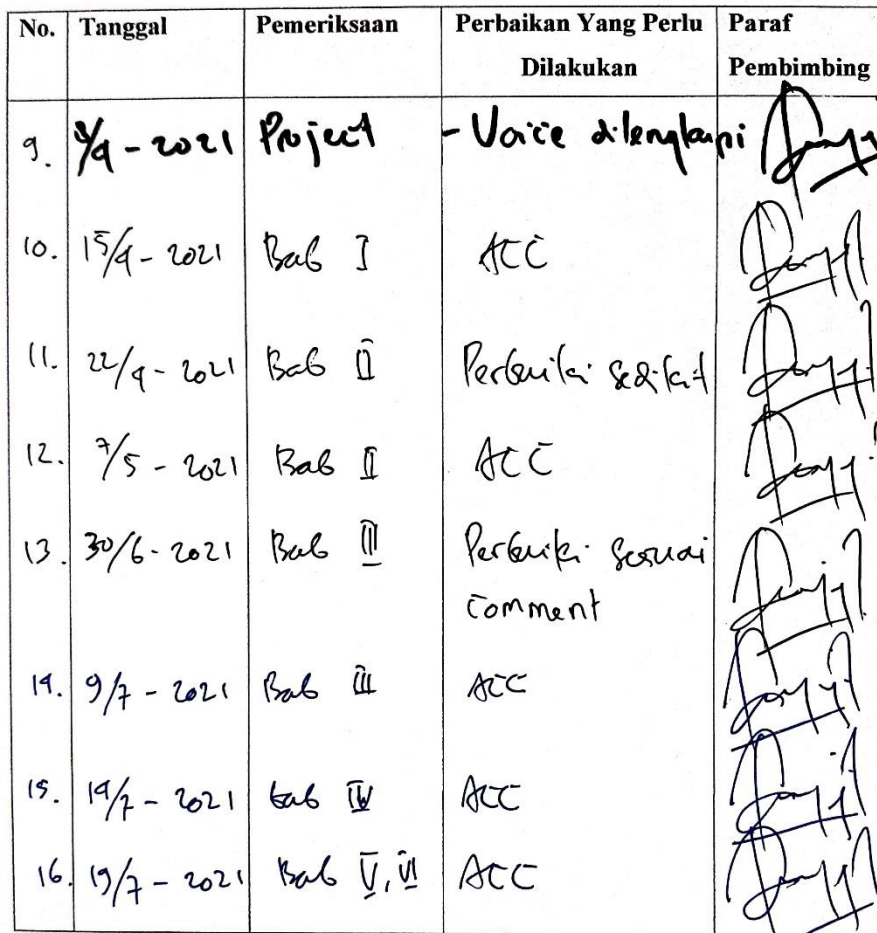 No. Tanggal Pemeriksaan Perbaikan Yang Perlu Dilakukan Paraf Pembimbing
9. /4 - 2021 Project - Voice dilengkapi
10. 15/4 - 2021 Bab I ACC
11. 22/4 - 2021 Bab II Perbaiki sedikit
12. 7/5 - 2021 Bab II ACC
13. 30/6 - 2021 Bab III Perbaiki sesuai
Comment
14. 9/7 - 2021 Bab III ACC
15. 14/7 - 2021 Bab IV ACC
16. 19/7 - 2021 Bab V, VI ACC